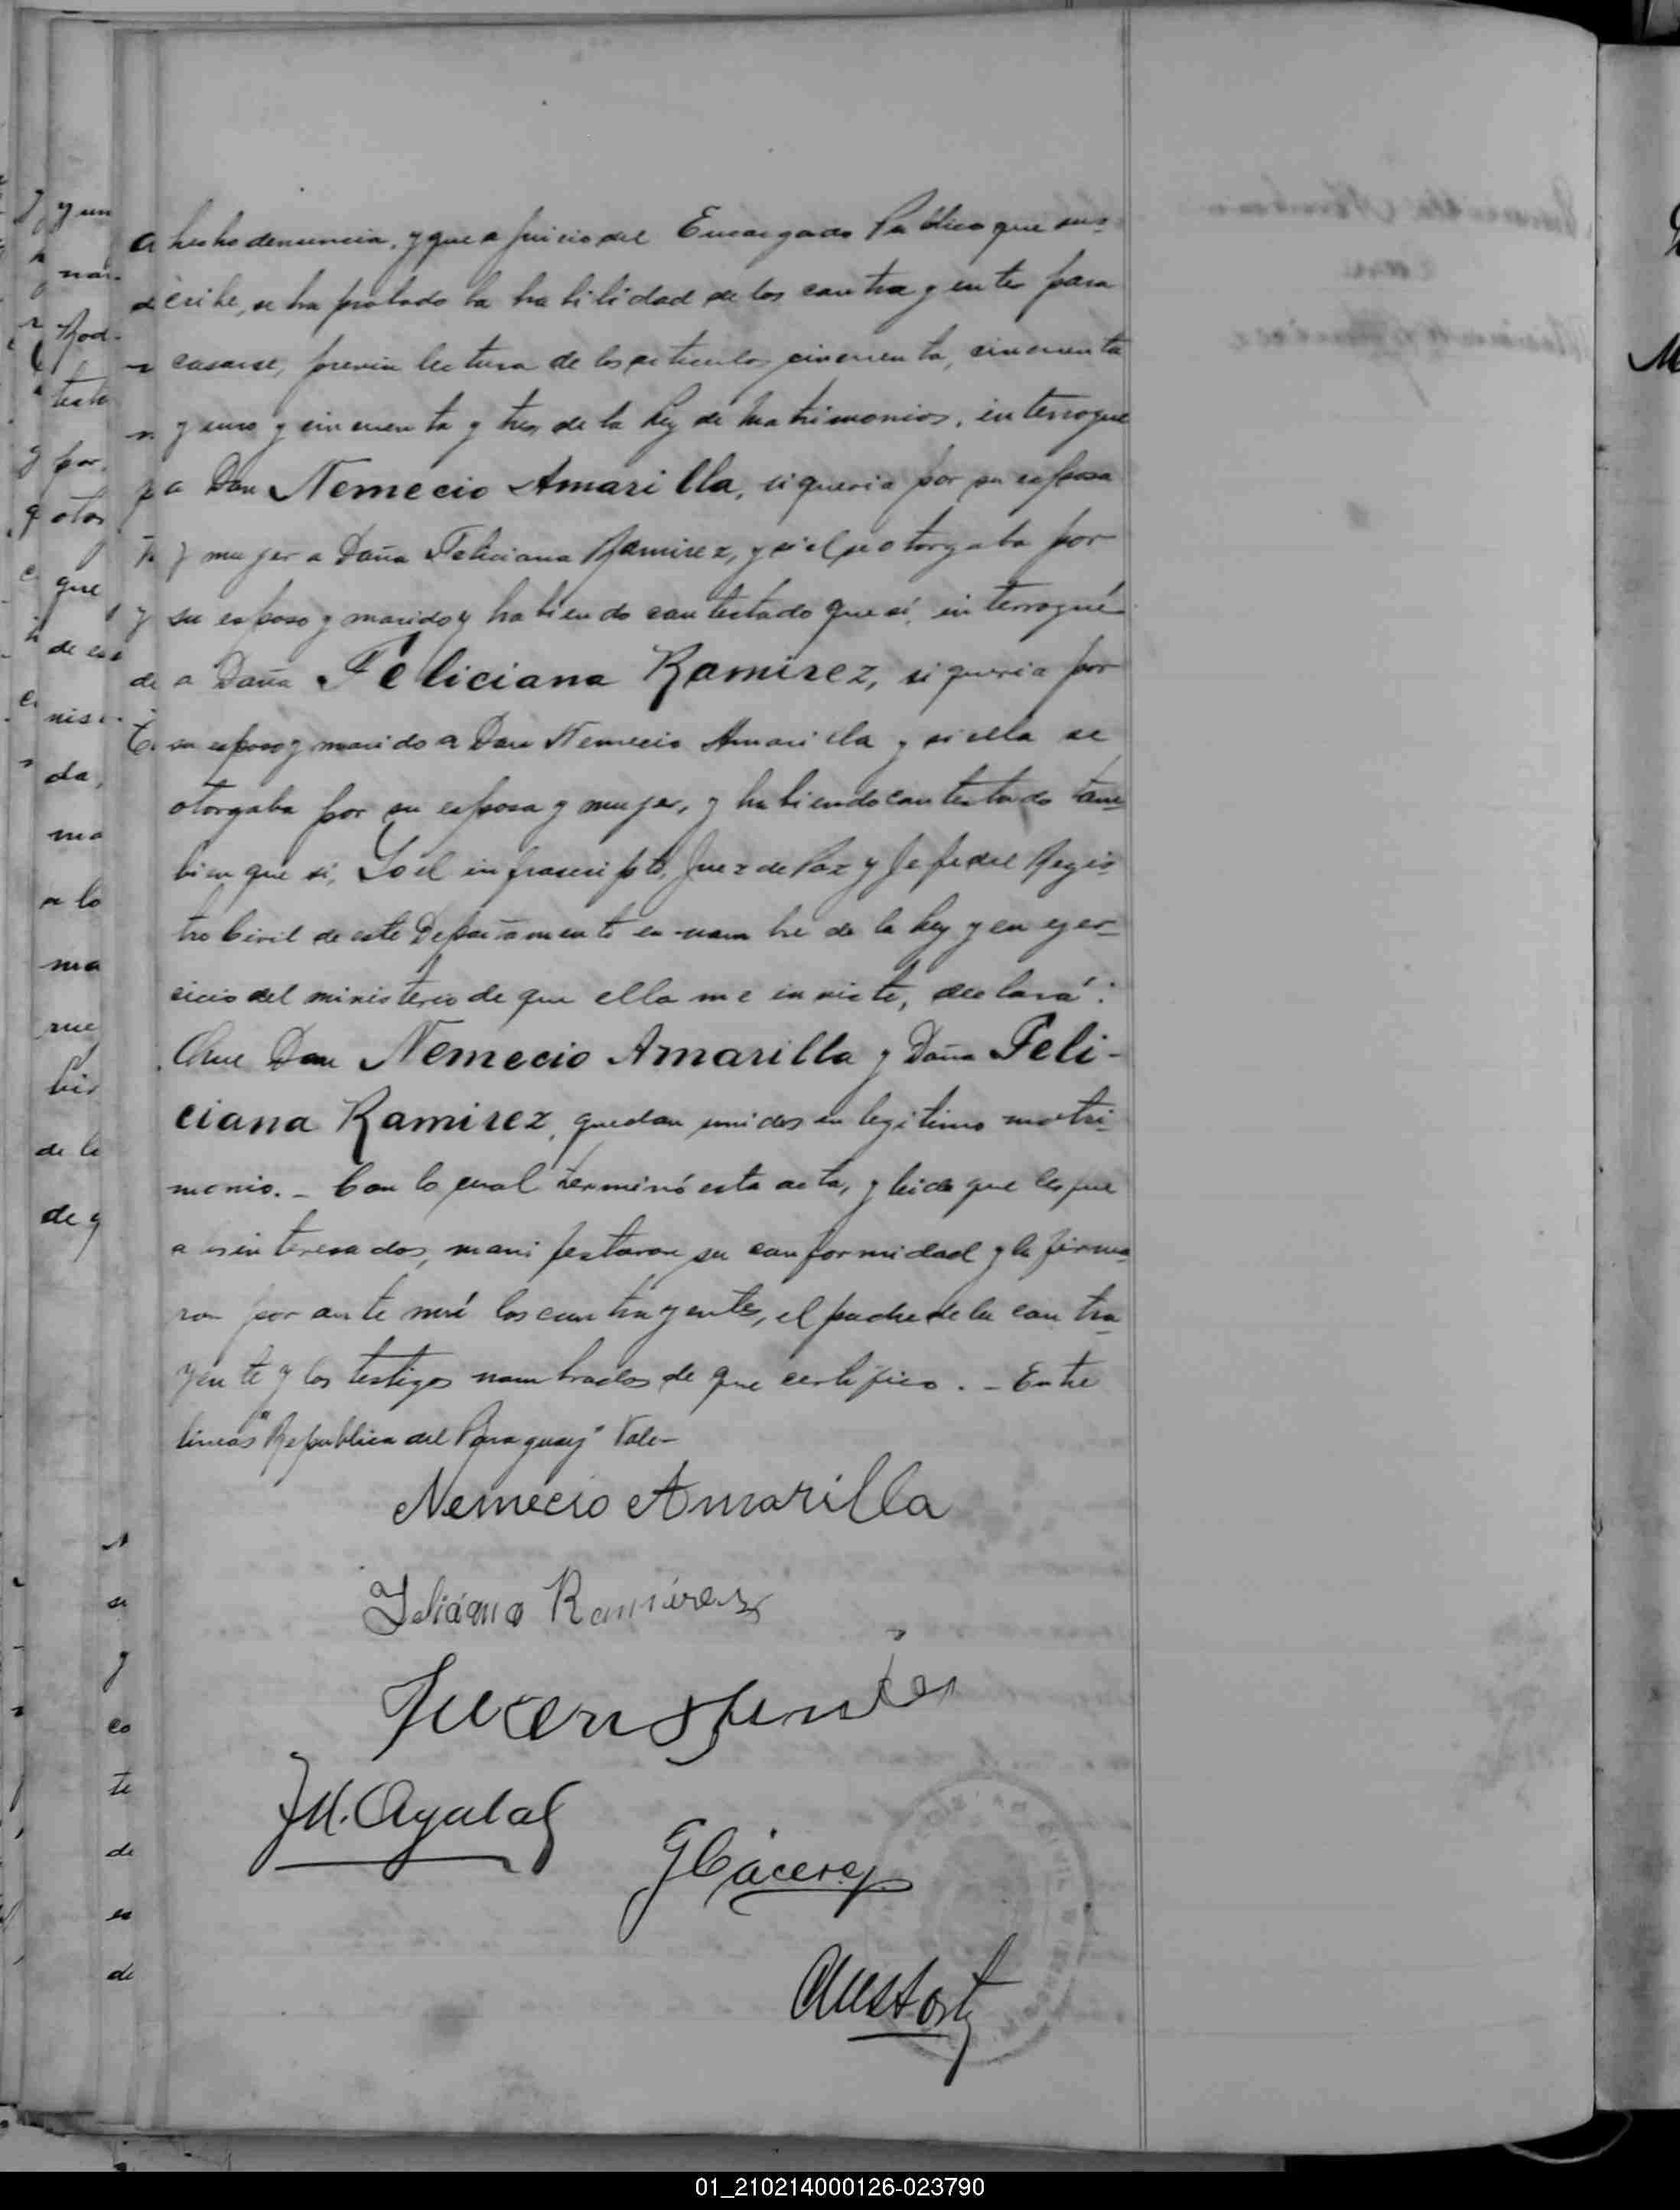 hecho denuncia, y que a juicio del Encargado Publico que sus-
cribe, se ha probado la habilidad de los contrayentes para
casarse, previa lectura de los articulos cincuenta, cincuenta
y uno y cincuenta y tres de la Ley de Matrimonios, interrogue
a Don Nemecio Amarilla, si queria por su esposa
y mujer a Doña Feliciana Ramirez, y si el se otorgaba por
su esposo y marido y habiendo contestado que sí, interrogué
a Doña Feliciana Ramirez, si queria por
su esposo y marido a Don Nemecio Amarilla y si ella se
otorgaba por su esposa y mujer, y habiendo contestado tam-
bien que si, Yo el infrascripto, Juez de Paz y Jefe del Regis-
tro Civil de este Departamento en nombre de la Ley y en ejer-
cicio del ministerio de que ella me inviste, declará:
Que Don Nemecio Amarilla y Doña Feli-
ciana Ramirez, quedan unidos en legitimo matri-
monio. - Con lo cual terminó esta acta, y leida que les fue
a los interesados, manifestaron su conformidad y la firma-
ron por ante mi los contrayentes, el padre de la contra-
yente y los testigos nombrados de que certifico. - Entre
lineas "Republica del Paraguay" Vale-
Nemecio Amarilla
Ramirez
J M. Ayala
G Cáceres
01_210214000126-023790